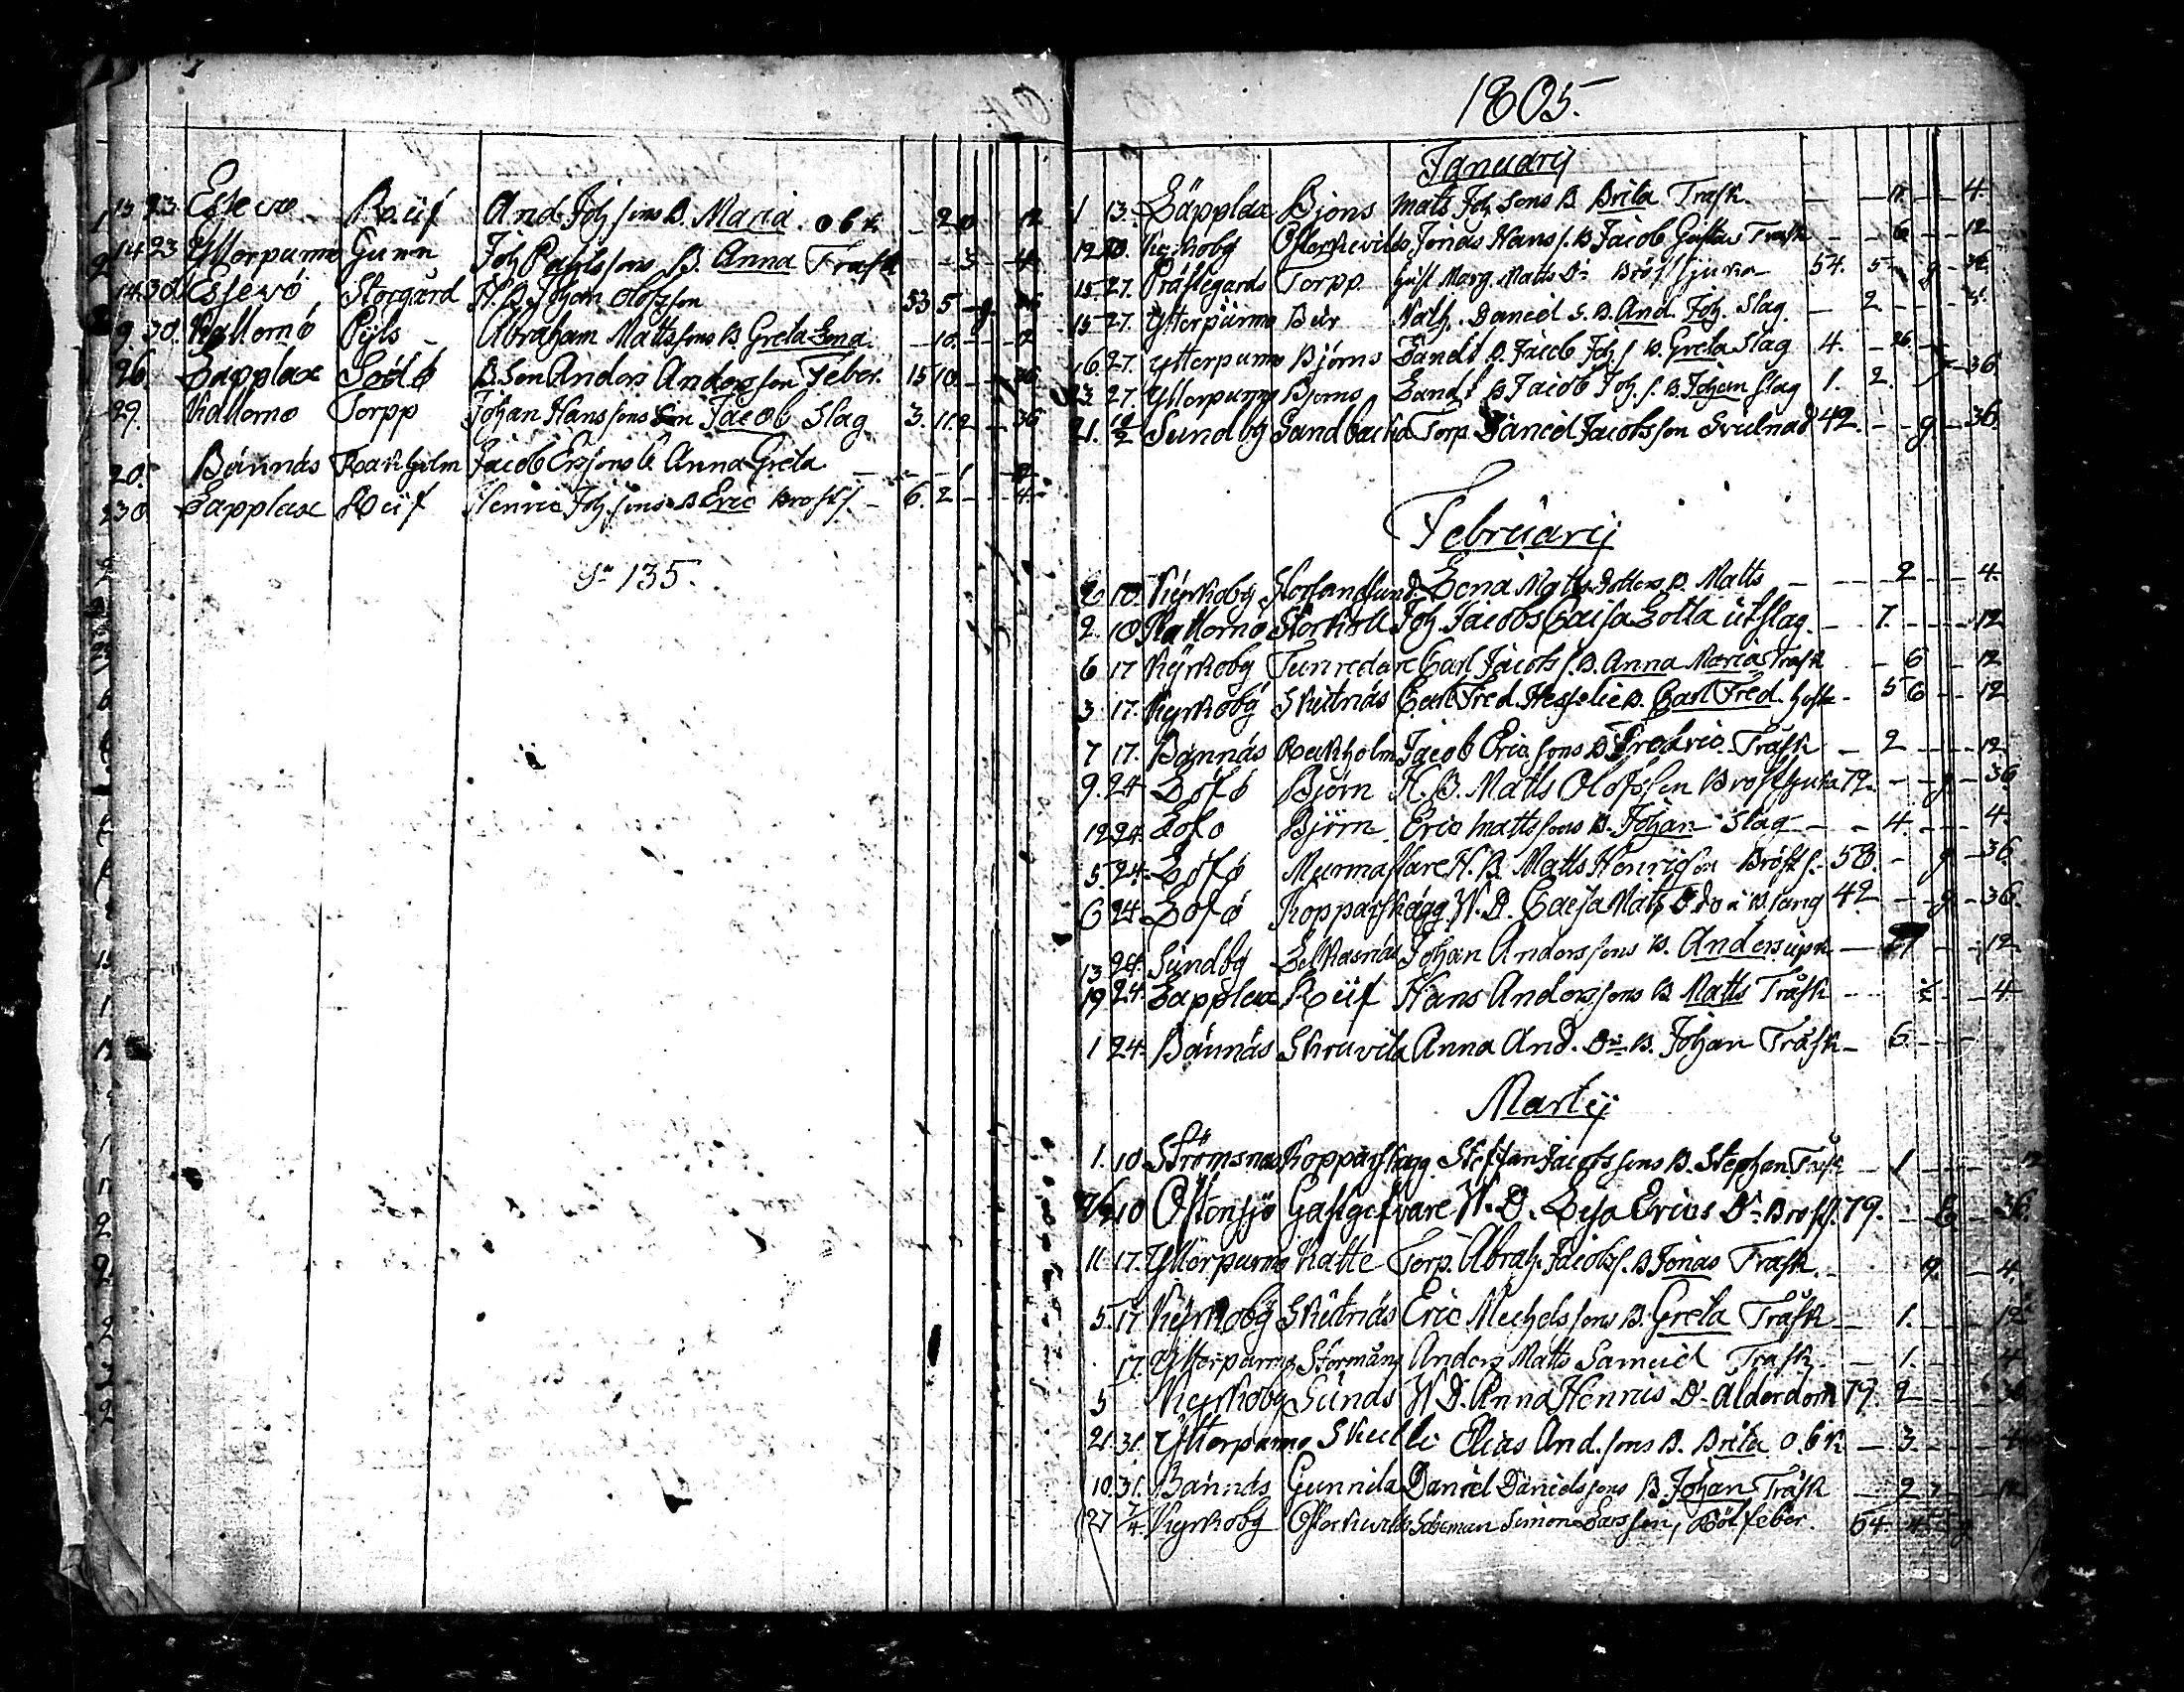 13 23 Essevö Rüf And. Joh. sons B. Maria obk - 20 - 12
14 23 Ytterpurmo Gunn Joh Pahlssons B. Anna Trask - 3 - 4
14 30 Essevö Storgård H. B. Johan Olofsson 53 5 - g. 36
9. 30. Kållomö Pyls - Abraham Mattssons B. Greta Lena. - 10.
26. Lapplax Södö B. Son Anders Andersson Feber. 15 10 - 36
29. Kållomö Torpp Johan Hanssons Son Jacob Slag 3. 11. 2 - 36
20. Bännäs Rakholm Jacob Erssons B Anna Greta - - 1
30 Lapplax Rüf Henric Joh. sons B Eric Brostf. - 6. 2 - - 4
Sa 135.
1805.
Januarij
1 13. Läpplax Bjons Matts Joh. sons B. Brita Trask. - - 4.
12 20. Kyrkoby Österkwills Jonas Hans s. B Jacob Gustav Trask - - 6 - 12
15. 27. Prästegårds Torpp Hust Marg. Matts Dr Bröstsjuka 54. 5 - g - 36.
15 27. Ytterpurmo Bur Math. Daniel s. B. And. Joh. Slag. - 2. - -
16. 27. Ytterpurmo Bjons Sandt B. Jacob Joh. s B. Greta Slag 4. - 26. - 36
23 27. Ytterpurmo Bjons Sandt B Jacob Joh. s. B. Johan Slag 1. 2.
21. Sundby Sandbacka Torp. Daniel Jacobsson Svulnad 42. - - g - 36.
Februarij
2 10. Kyrkoby Storsandsund Lena Matts dotters B. Matts - - 2 - - 4.
2. 10 Kållomö Storkoll Joh. Jacobs Cajsa Lotta utslag. - 7. - - 12
6 17 Kyrkoby Tunredare Carl Jacobs s. B. Anna Maria Trask - 6 - 12
3 17. Kyrkoby Skutnäs Carl Fred. Hesselie B. Carl Fred. Hosta - 5 6 - - 12
7 17. Bännäs Rakholm Jacob Ericsons B Fredric Trask - 2 - - 12
9. 24 Löfö Björn H. B. Matts Olofsson Bröstsjuka 72. - - g - 36.
12 24. Löfö Björn Eric Mattssons B. Johan Slag - - 4. - - 4.
5. 24. Löfö Murmästare H. B. Matts Henricson Bröst s. 58. - g - 36.
6 24 Löfö Kopparslagg. H. D. Cajsa Matts Dr i B. sang 42. - - g - 36.
13 24. Sundby Lilkasnäs Johan Anderssons B. Anders upk. - - - 12
19 24. Lapplax Rüf Hans Anderssons B Matts Trask - - - 4
1 24. Bännäs Skruvila Anna And. Dr B. Johan Trask - 6. - -
Martij
1. 10 Strömsnäs Kopparslagg. Steffan Jacobssons B. Stephan Trask - 1 - - 12
10 Östensjö Gästgifvare H. D. Lisa Erics Dr Brostf. 79. - - 36.
11. 17. Ytterpurmo Katte Torp. Abrah. Jacobs s. B Jonas Trask. - - 4.
5. 17 Kyrkoby Skutnäs Eric Michelssons B. Greta Trask - 1. - - 12
17. Ytterpurmo Stormäng Anders Matts Samuel Trask. - 1. - - 4
5 Kyrkoby Sunds H D. Anna Henrics Dr Alderdom 79. 2 - - 36
21 31. Ytterpurmo Skulle Elias And. sons B. Brita obk - 3. - - 4
10. 31. Bännäs Gunnila Daniel Danielssons B. Johan Trask - 2 - - 12
27 7/4. Kyrkoby Österkwills Sojeman Simon Larsson, Rötfeber. 64.